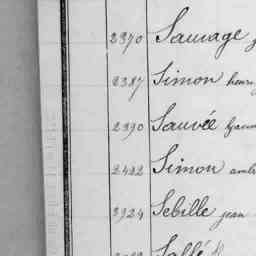 2370 Sauvage
2387 Simon henry
2390 Sauvée
2422 Simon
3924 Sebille jean
Sallé